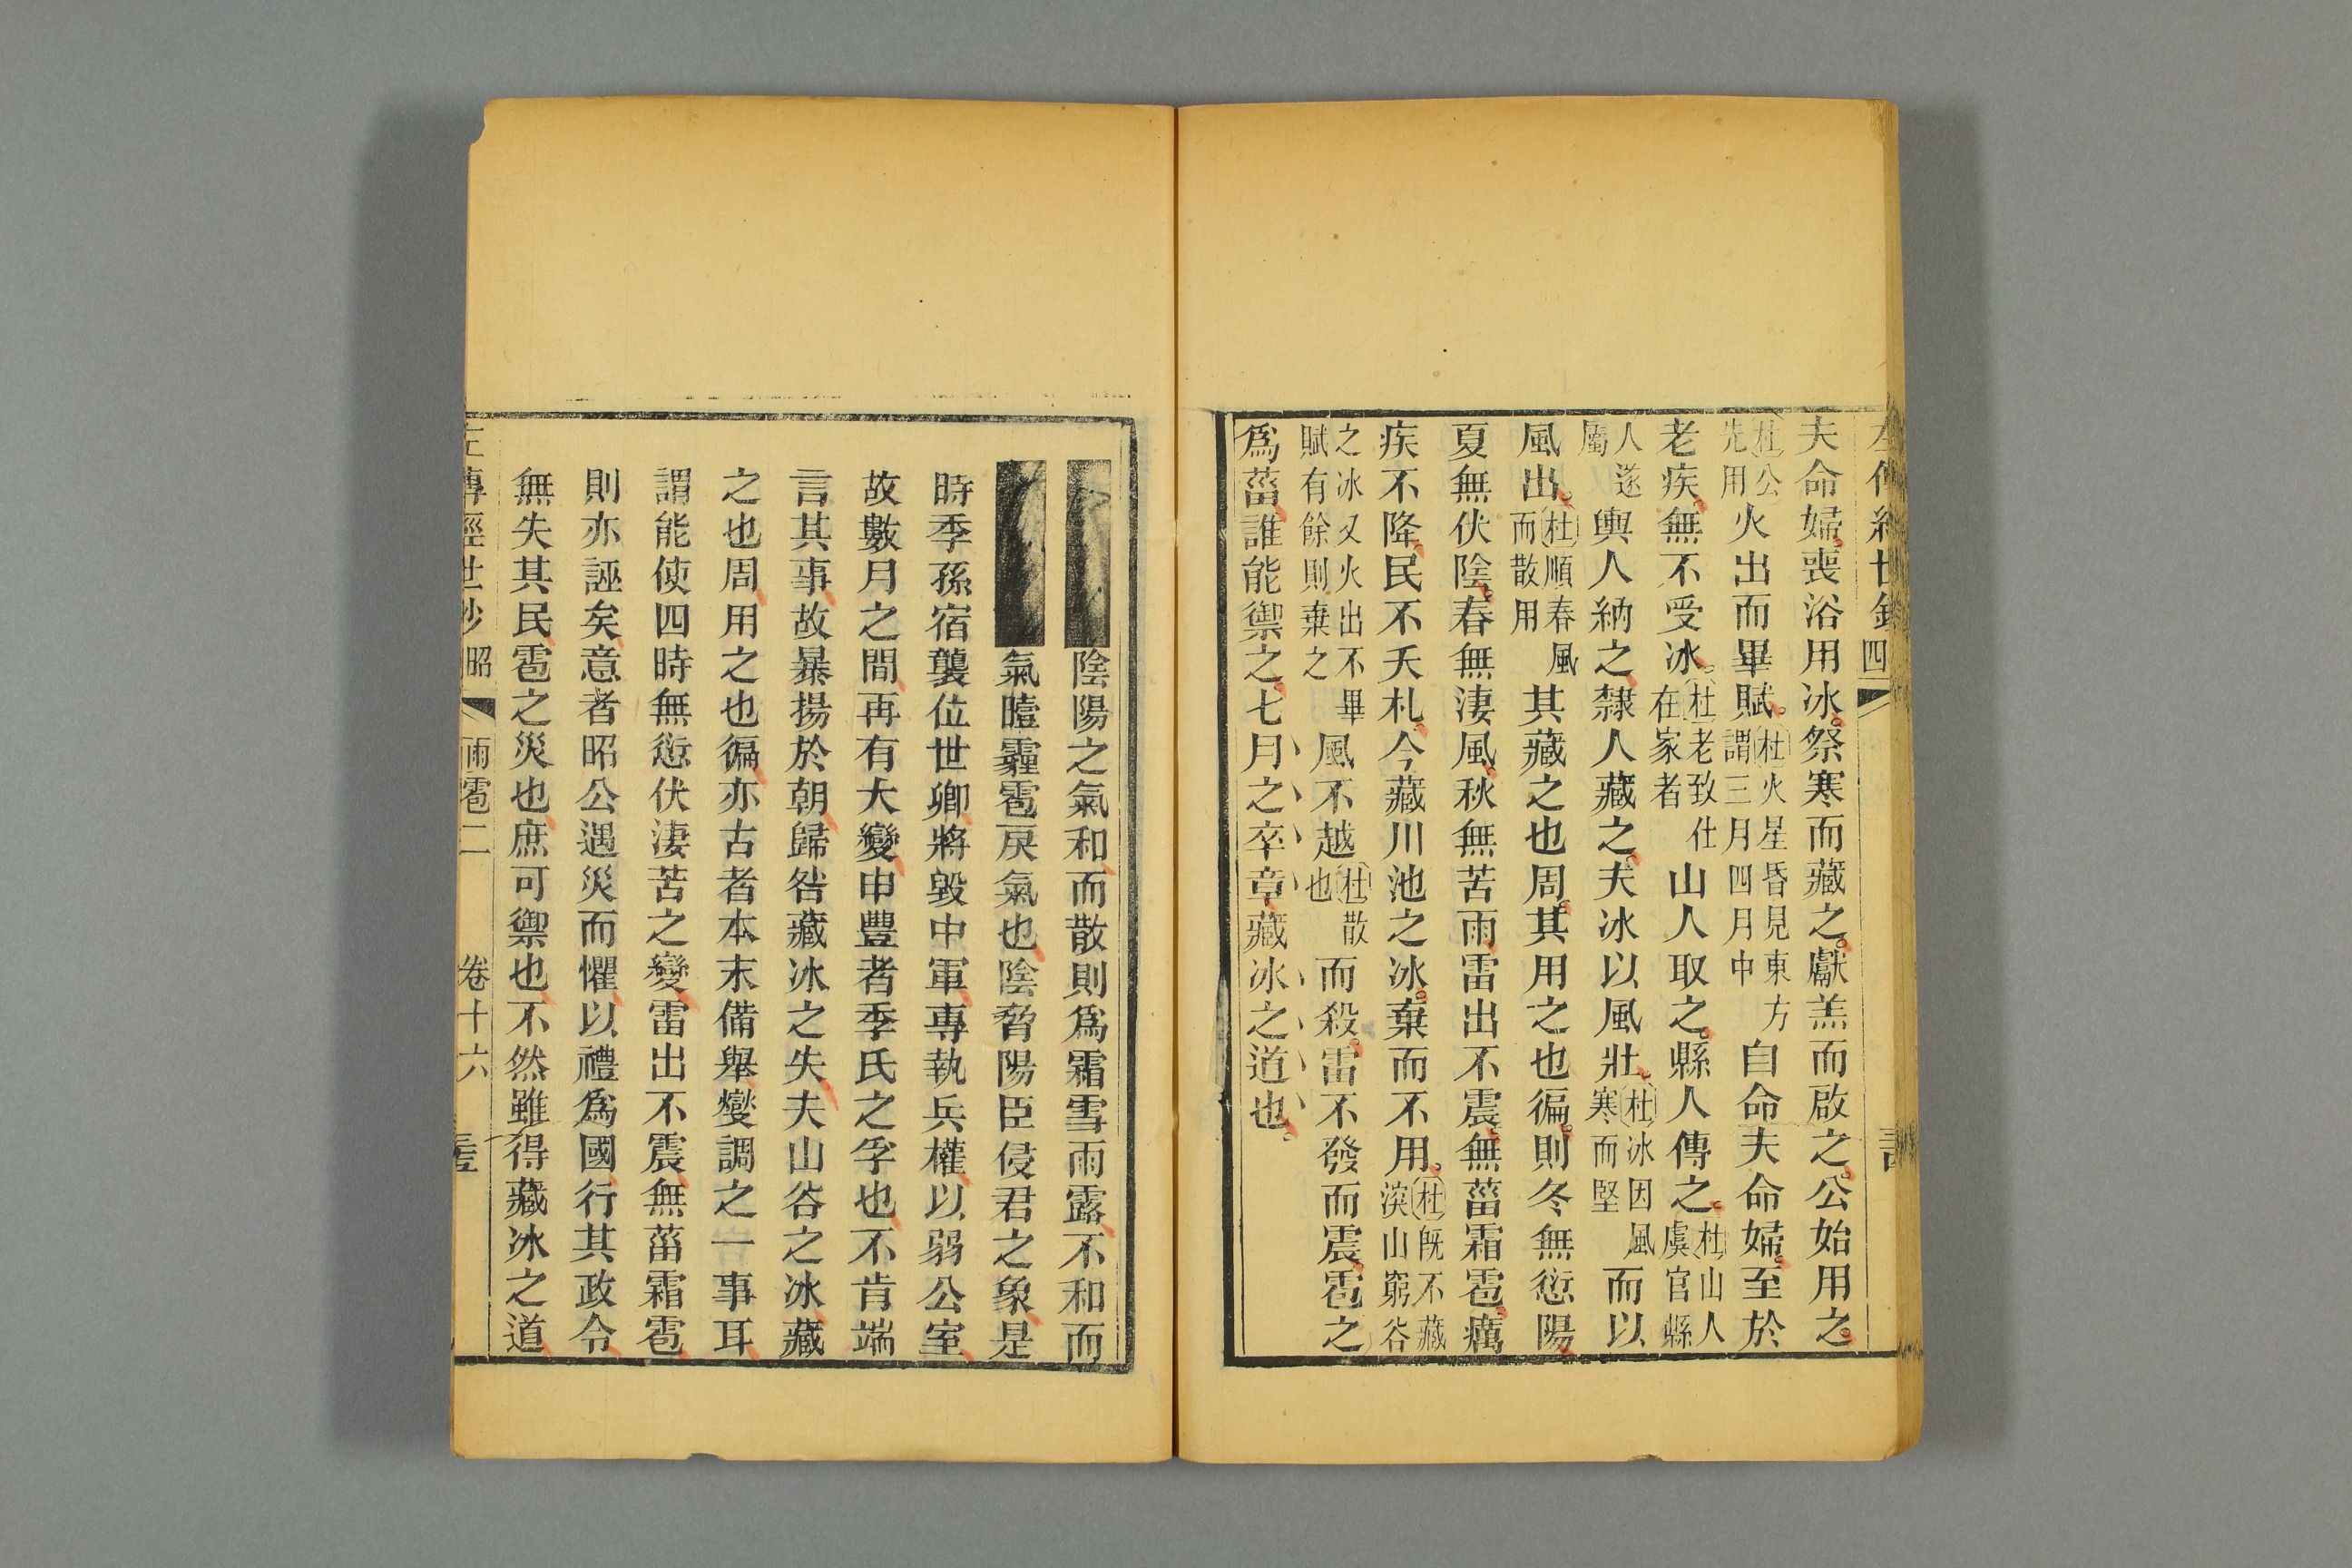 夫命婦喪浴用冰祭寒而藏之獻羔而啟之公始用之
杜公先用火出而畢賦杜火星昏見東方謂三月四月中自命夫命婦至於
老疾無不受冰杜老致仕在家者山人取之縣人傳之杜山人虞官縣
人遂屬輿人納之隸人藏之夫冰以風壯杜冰因風寒而堅而以
風出杜順春風而散用其藏之也周其用之也徧則冬無愆陽
夏無伏陰春無淒風秋無苦雨雷出不震無菑霜雹癘
疾不降民不夭札今藏川池之冰棄而不用杜既不藏深山窮谷
之冰又火出不畢賦有餘則棄之風不越杜散也而殺雷不發而震雹之
為菑誰能禦之七月之卒章藏冰之道也
陰陽之氣和而散則為霜雪雨露不和而
氣曀霾雹戾氣也陰脅陽臣侵君之象是
時季孫宿襲位世卿將毀中軍專執兵權以弱公室
故數月之間再有大變申豐者季氏之孚也不肯端
言其事故暴揚於朝歸咎藏冰之失夫山谷之冰藏
之也周用之也徧亦古者本末備舉燮調之一事耳
謂能使四時無愆伏淒苦之變雷出不震無菑霜雹
則亦誣矣意者昭公遇災而懼以禮為國行其政令
無失其民雹之災也庶可禦也不然雖得藏冰之道
左傳經世鈔 昭 雨雹二 卷十六